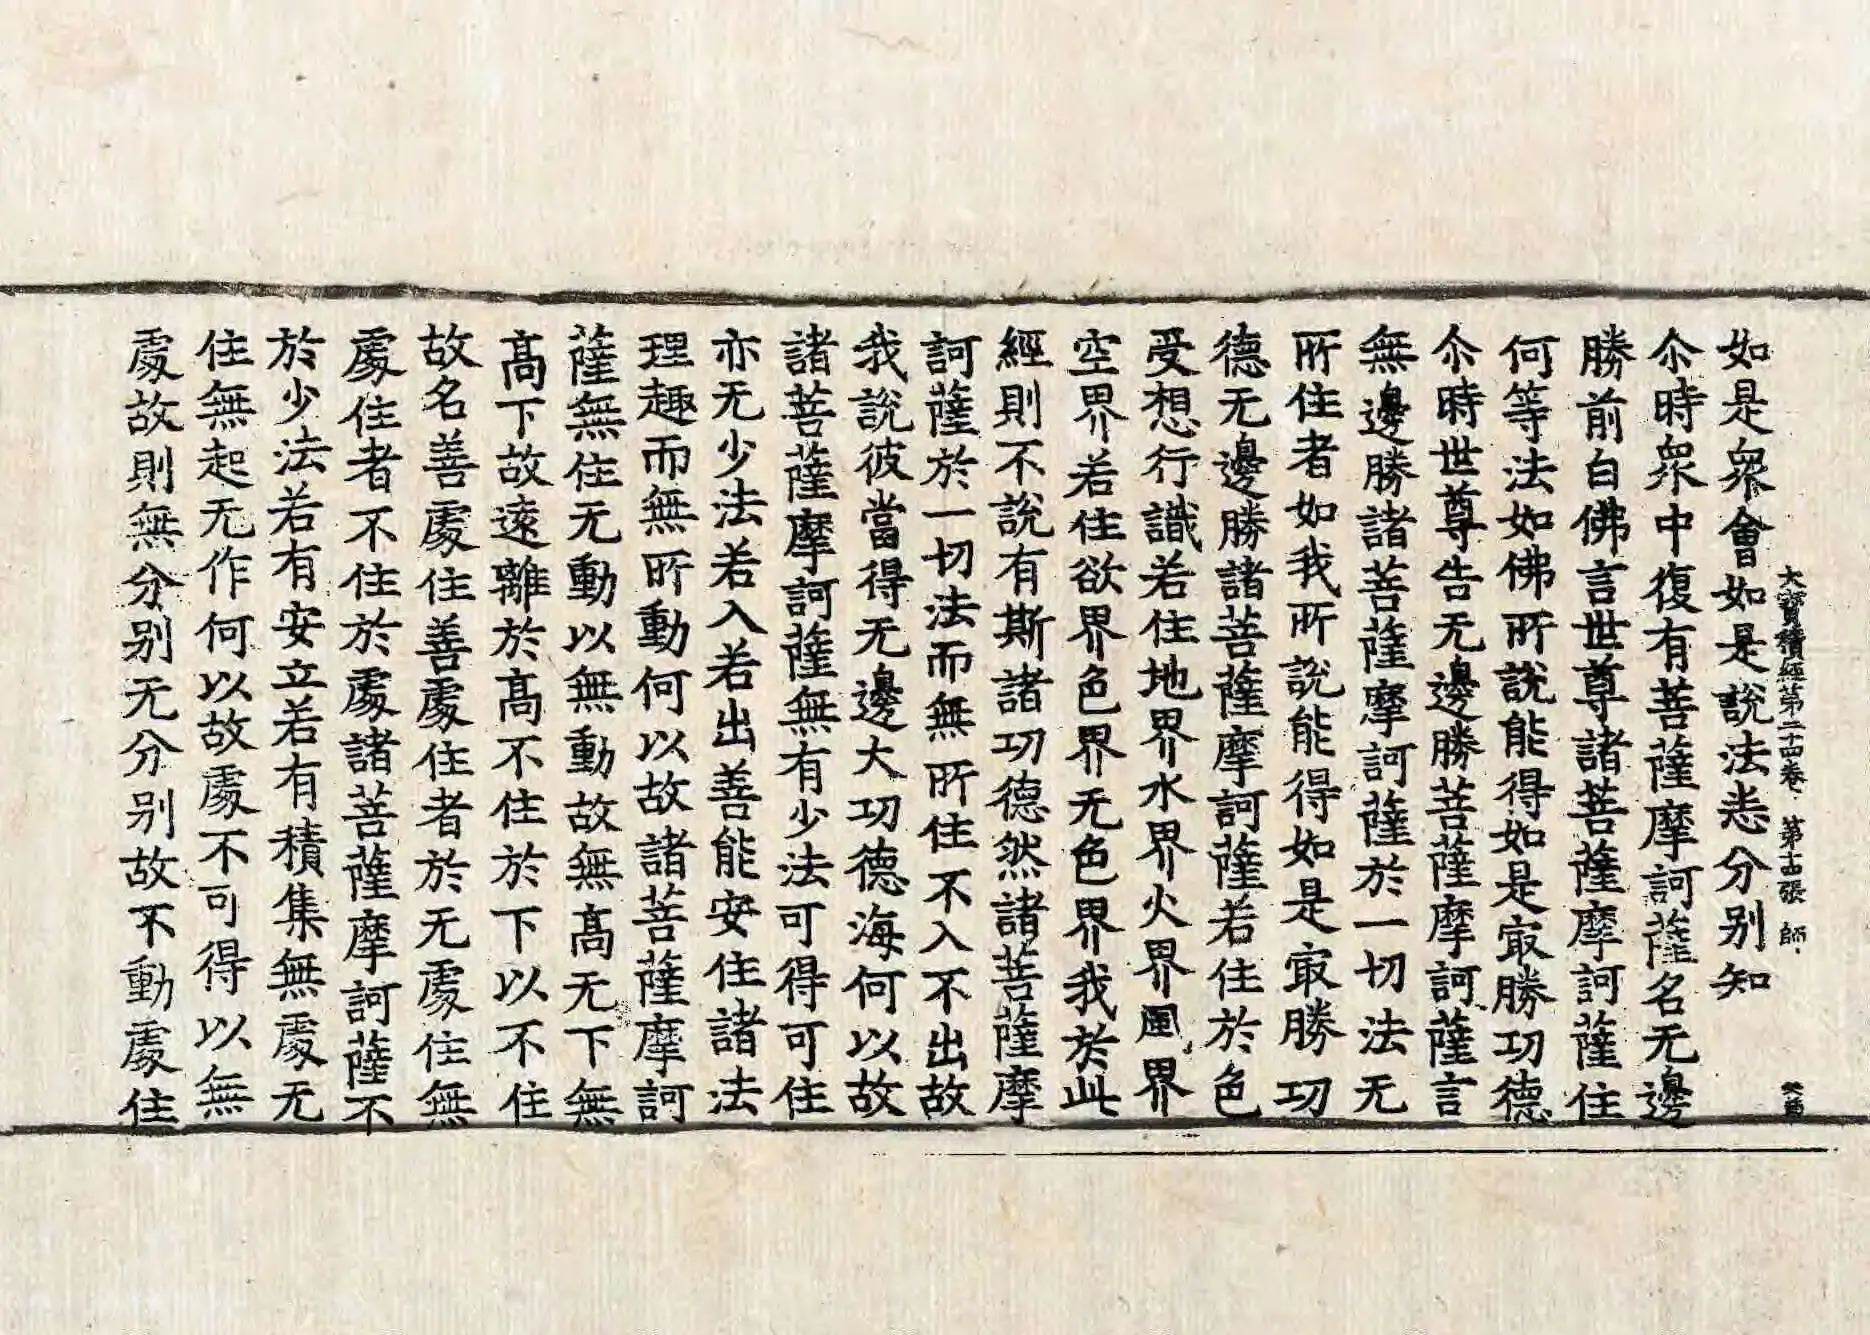 大寶積經第二十四卷 第十五張 師
如是衆會如是說法悉分別知
尒時衆中復有菩薩摩訶薩名无邊
勝前白佛言世尊諸菩薩摩訶薩住
何等法如佛所說能得如是㝡勝功德
尒時世尊告无邊勝菩薩摩訶薩言
無邊勝諸菩薩摩訶薩於一切法无
所住者如我所說能得如是㝡勝功
德无邊勝諸菩薩摩訶薩若住於色
受想行識若住地界水界火界風界
空界若住欲界色界无色界我於此
經則不說有斯諸功德然諸菩薩摩
訶薩於一切法而無所住不入不出故
我說彼當得无邊大功德海何以故
諸菩薩摩訶薩無有少法可得可住
亦无少法若入若出善能安住諸法
理趣而無所動何以故諸菩薩摩訶
薩無住无動以無動故無髙无下無
髙下故遠離於髙不住於下以不住
故名善䖏住善䖏住者於无䖏住無
䖏住者不住於䖏諸菩薩摩訶薩不
於少法若有安立若有積集無䖏无
住無起无作何以故䖏不可得以無
䖏故則無分别无分别故不動䖏住